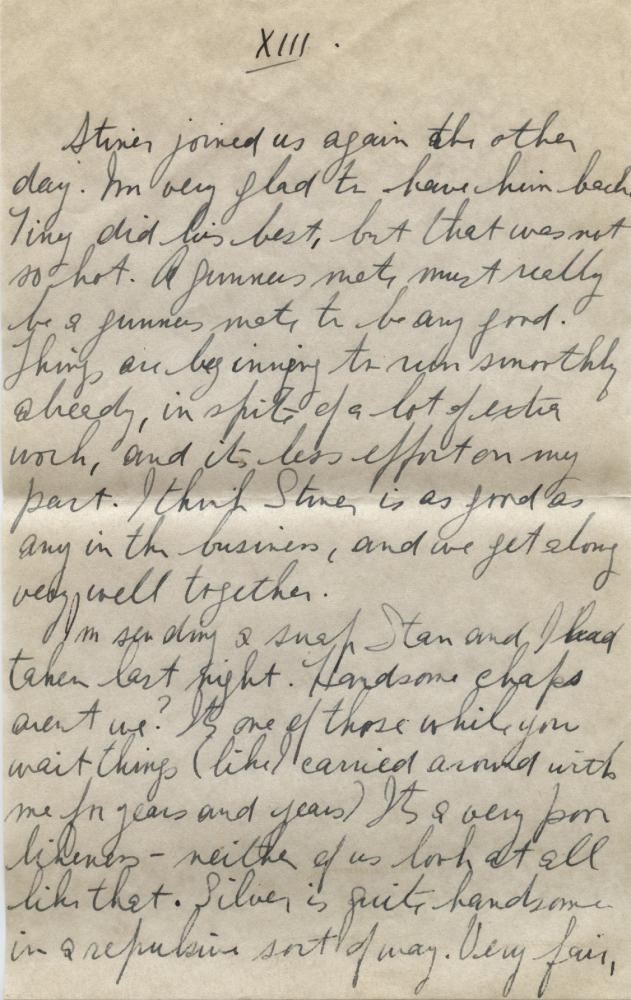 XIII.
Stiner joined us again the other
day. Im very glad to have him back
Tiny did his best, but that was not
so hot. A gunners mate must really
be a gunners mate to be any good.
Things are beginning to run smoothly
already, in spite of a lot of extra
work, and its less effort on my
part. I think Stiner is as good as
any in the business, and we get along
very well together.
Im sending a snap Stan and I had
taken last night. Handsome chaps
arent we? Its one of those while you
wait things (like I carried around with
me for years and years) Its a very poor
likeness - neither of us look at all
like that. Silver is quite handsome
in a repulsive sort of way. Very fair,